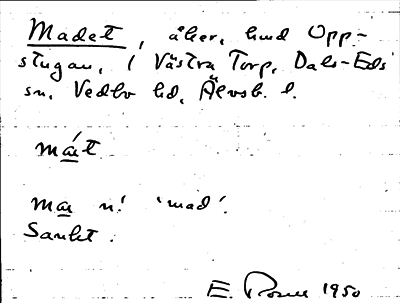 Madet, åker, hmd Opp-
stugan, i Västra Torp, Dals-Eds
sn, Vedbo hd, Älvsb. l.
mát
ma n! 'mad'.
Sankt.
E. 1950